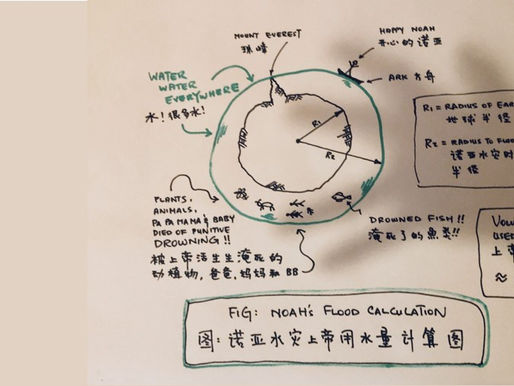 MOUNT EVEREST
珠峰
HAPPY NOAH
开心的诺亚
ARK 方舟
WATER
WATER
EVERYWHERE
水! 很多水!
R1
R2
R1 = RADIUS OF EAR
地球半径
R2 = RADIUS TO FLO
诺亚水灾时
半径
PLANTS,
ANIMALS,
PAPA MAMA & BABY
DIED OF PUNITIVE
DROWNING!!
被上帝活生生淹死的
动植物, 爸爸, 妈妈和 BB
DROWNED FISH!!
淹死了的魚类!!
VOLU
USED
上帝
≈
FIG: NOAH'S FLOOD CALCULATION
图: 诺亚水灾上帝用水量计算图